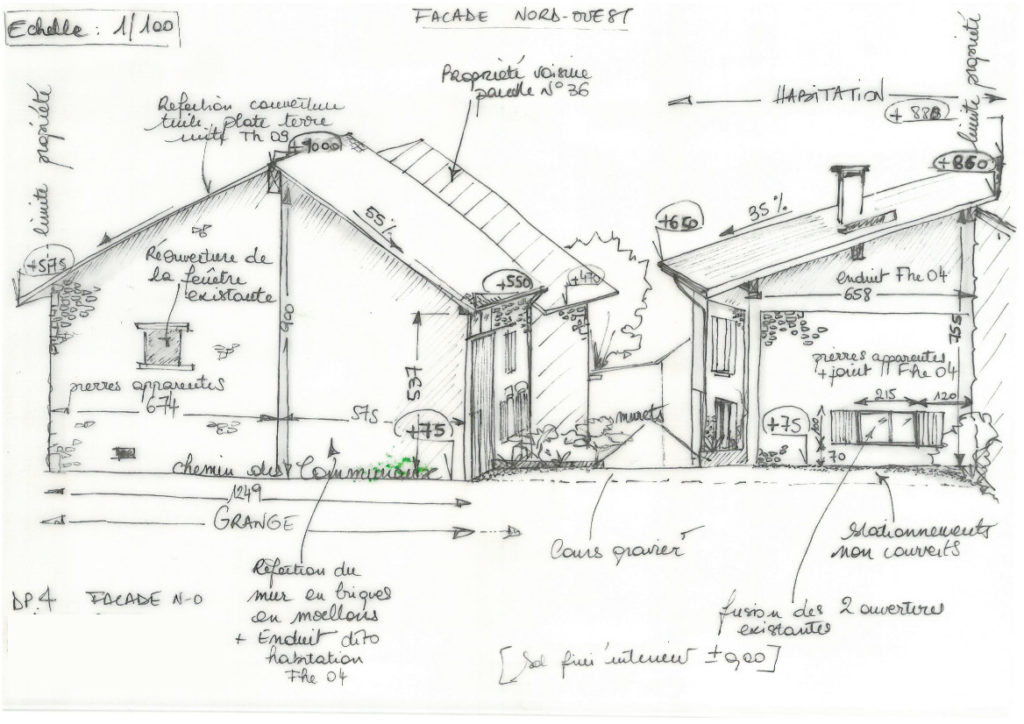 Echelle : 1/100
FACADE NORD-OUEST
limite propriété
Réfection couverture
tuile plate terre
cuite Th 09
Propriété voisine
parcelle N° 36
HABITATION
+ 880
limite propriété
+ 1000
+ 860
+575
55%
+650
35%
Réouverture de
la fenêtre
existante
+550
+470
enduit Fhe 04
658
900
537
755
pierres apparentes
+ joint Fhe 04
pierres apparentes
674
575
+75
murets
+75
215
120
70
chemin des Communaux
1249
GRANGE
Cours gravier
Stationnements
non couverts
Réfection du
mur en briques
en moellons
+ Enduit dito
habitation
Fhe 04
DP.4 FACADE N-O
fusion des 2 ouvertures
existantes
[Sol fini intérieur ± 0,00]